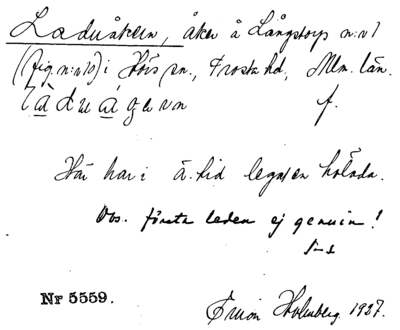 Laduåkern, åker å Långstorp n:r 1
(fig. n:r 10) i Hörs sn., Frosta hd., Mlm. län.
f.
Här har i ä. tid legat en hölada.
Obs. första leden ej genuin!
Nr 5559.
Ernion Holmberg 1927.